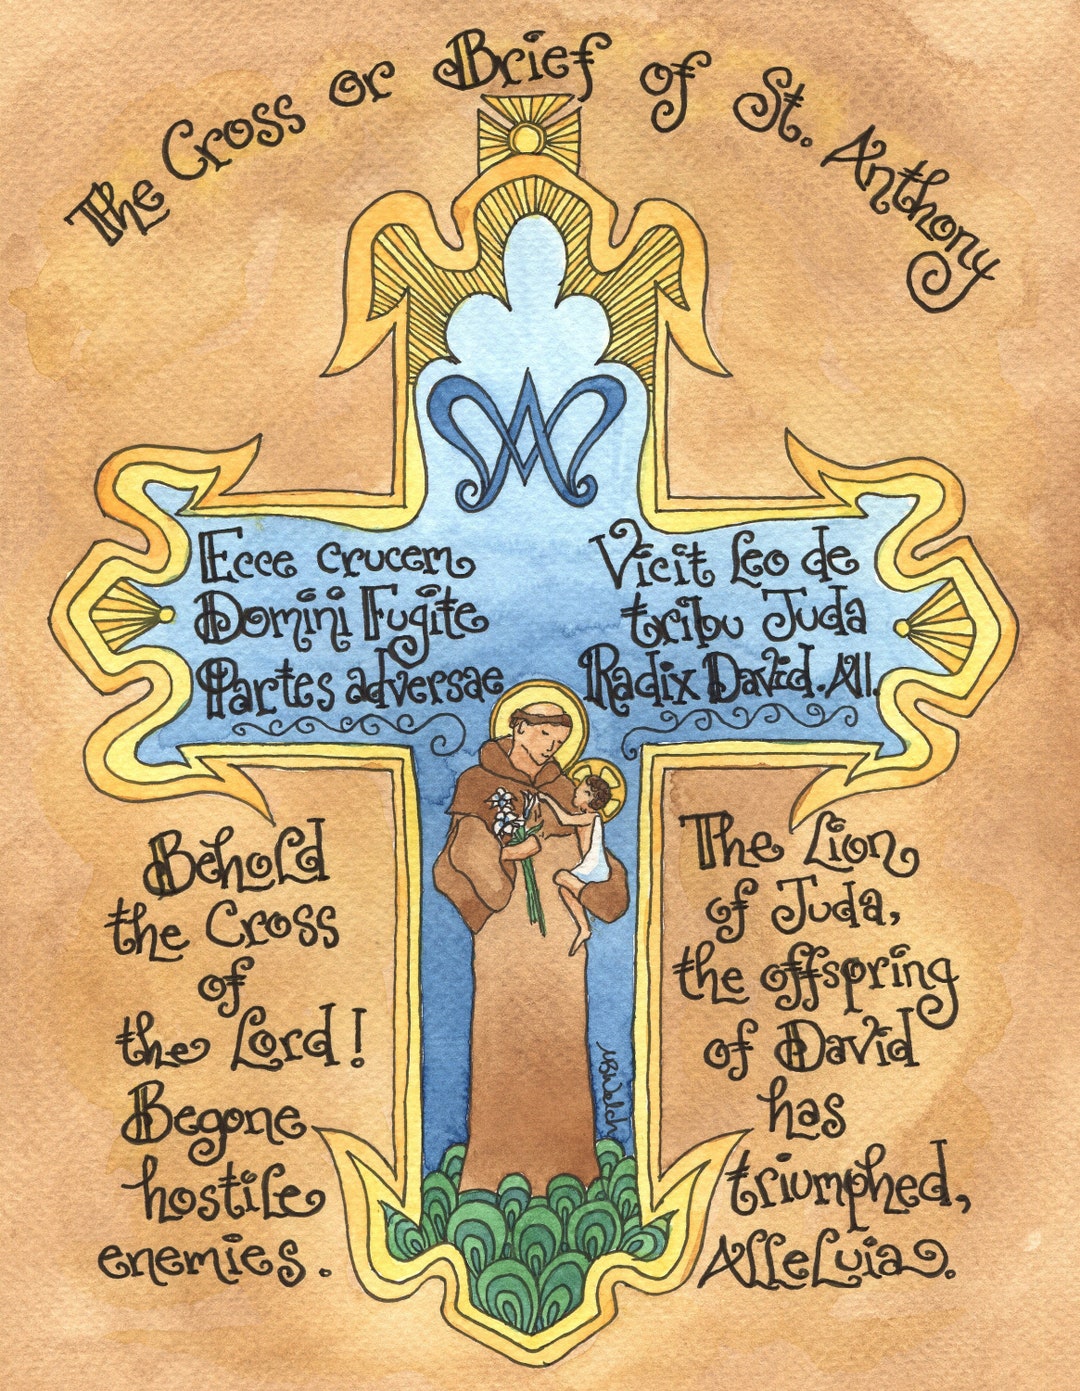 The Cross or Brief of St. Anthony
Ecce crucem
Domini Fugite
Partes adversae
Vicit Leo de
tribu Juda
Radix David. All.
Behold
the Cross
of
the Lord!
Begone
hostile
enemies.
The Lion
of Juda,
the offspring
of David
has
triumphed,
Alleluia.
MBWelch